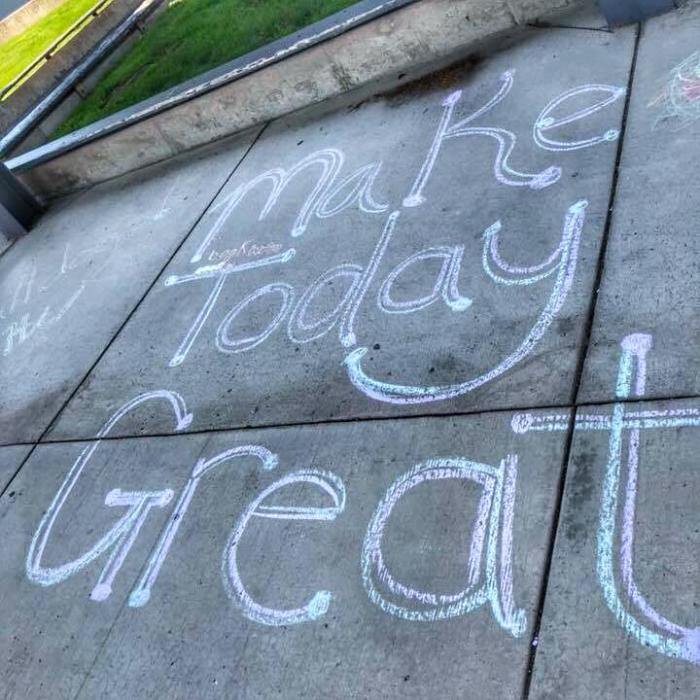 make
Today
Great